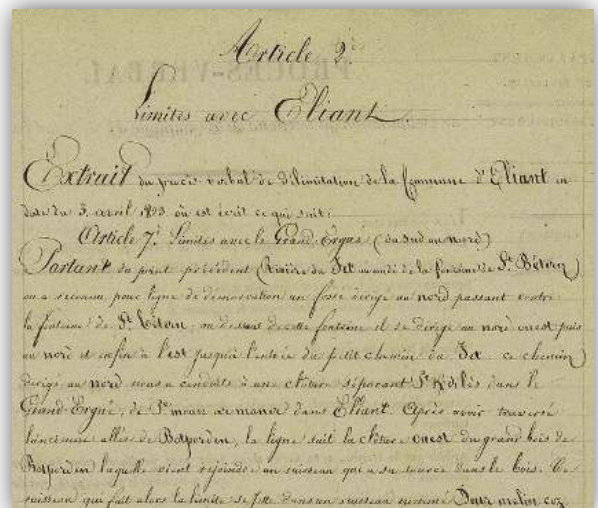 Article 2e
Limites avec Eliant.
Extrait du procès verbal de délimitation de la Commune d'Eliant en
date du 3 avril 1833 où est écrit ce qui suit:
Article 7e Limites avec le Grand-Ergué (du Sud au nord)
Partant du point précédent (Rivière du Jet au midi de la fontaine de St Bétern)
on a reconnu pour ligne de démarcation un fossé dirigé au nord passant contre
la fontaine de St Bétern; au dessus de cette fontaine il se dirige au nord ouest puis
au nord et enfin à l'est jusqu'à l'entrée du petit chemin du Jet. ce chemin
dirigé au nord nous a conduits à une clôture séparant dans le
Grand-Ergué, de dans Elliant. Après avoir traversé
l'ancienne allée de Botperden, la ligne suit la clôture ouest du grand bois de
Botperden laquelle vient rejoindre un ruisseau qui a sa source dans le bois. Ce
ruisseau qui fait alors la limite se jette dans un ruisseau nommé Dour melin coz.